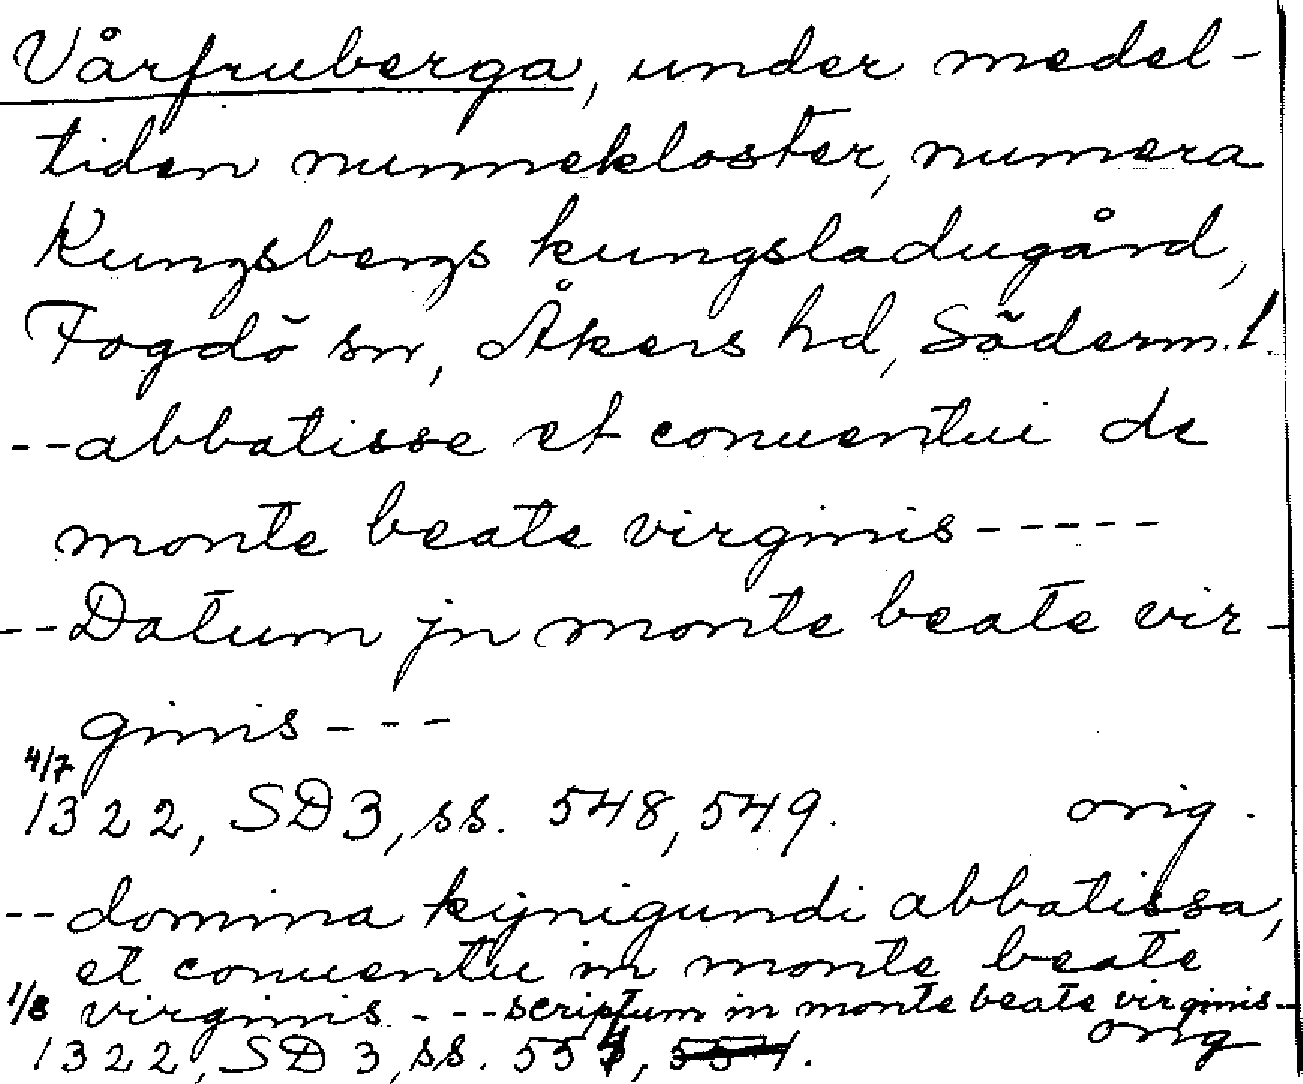 Vårfruberga, under medel-
tiden nunnekloster, numera
Kungsbergs kungsladugård,
Fogdö sn, Åkers hd, Söderm.l.
--abbatisse et conuentui de
monte beate virginis-----
--Datum jn monte beate vir-
ginis---
4/7
1322, SD3, ss. 548, 549. orig.
--domina kÿnigundi abbatissa,
et conuentu in monte beate
1/8 virginis. ---scriptum in monte beate virginis-
1322, SD 3, ss. 554, 554. orig